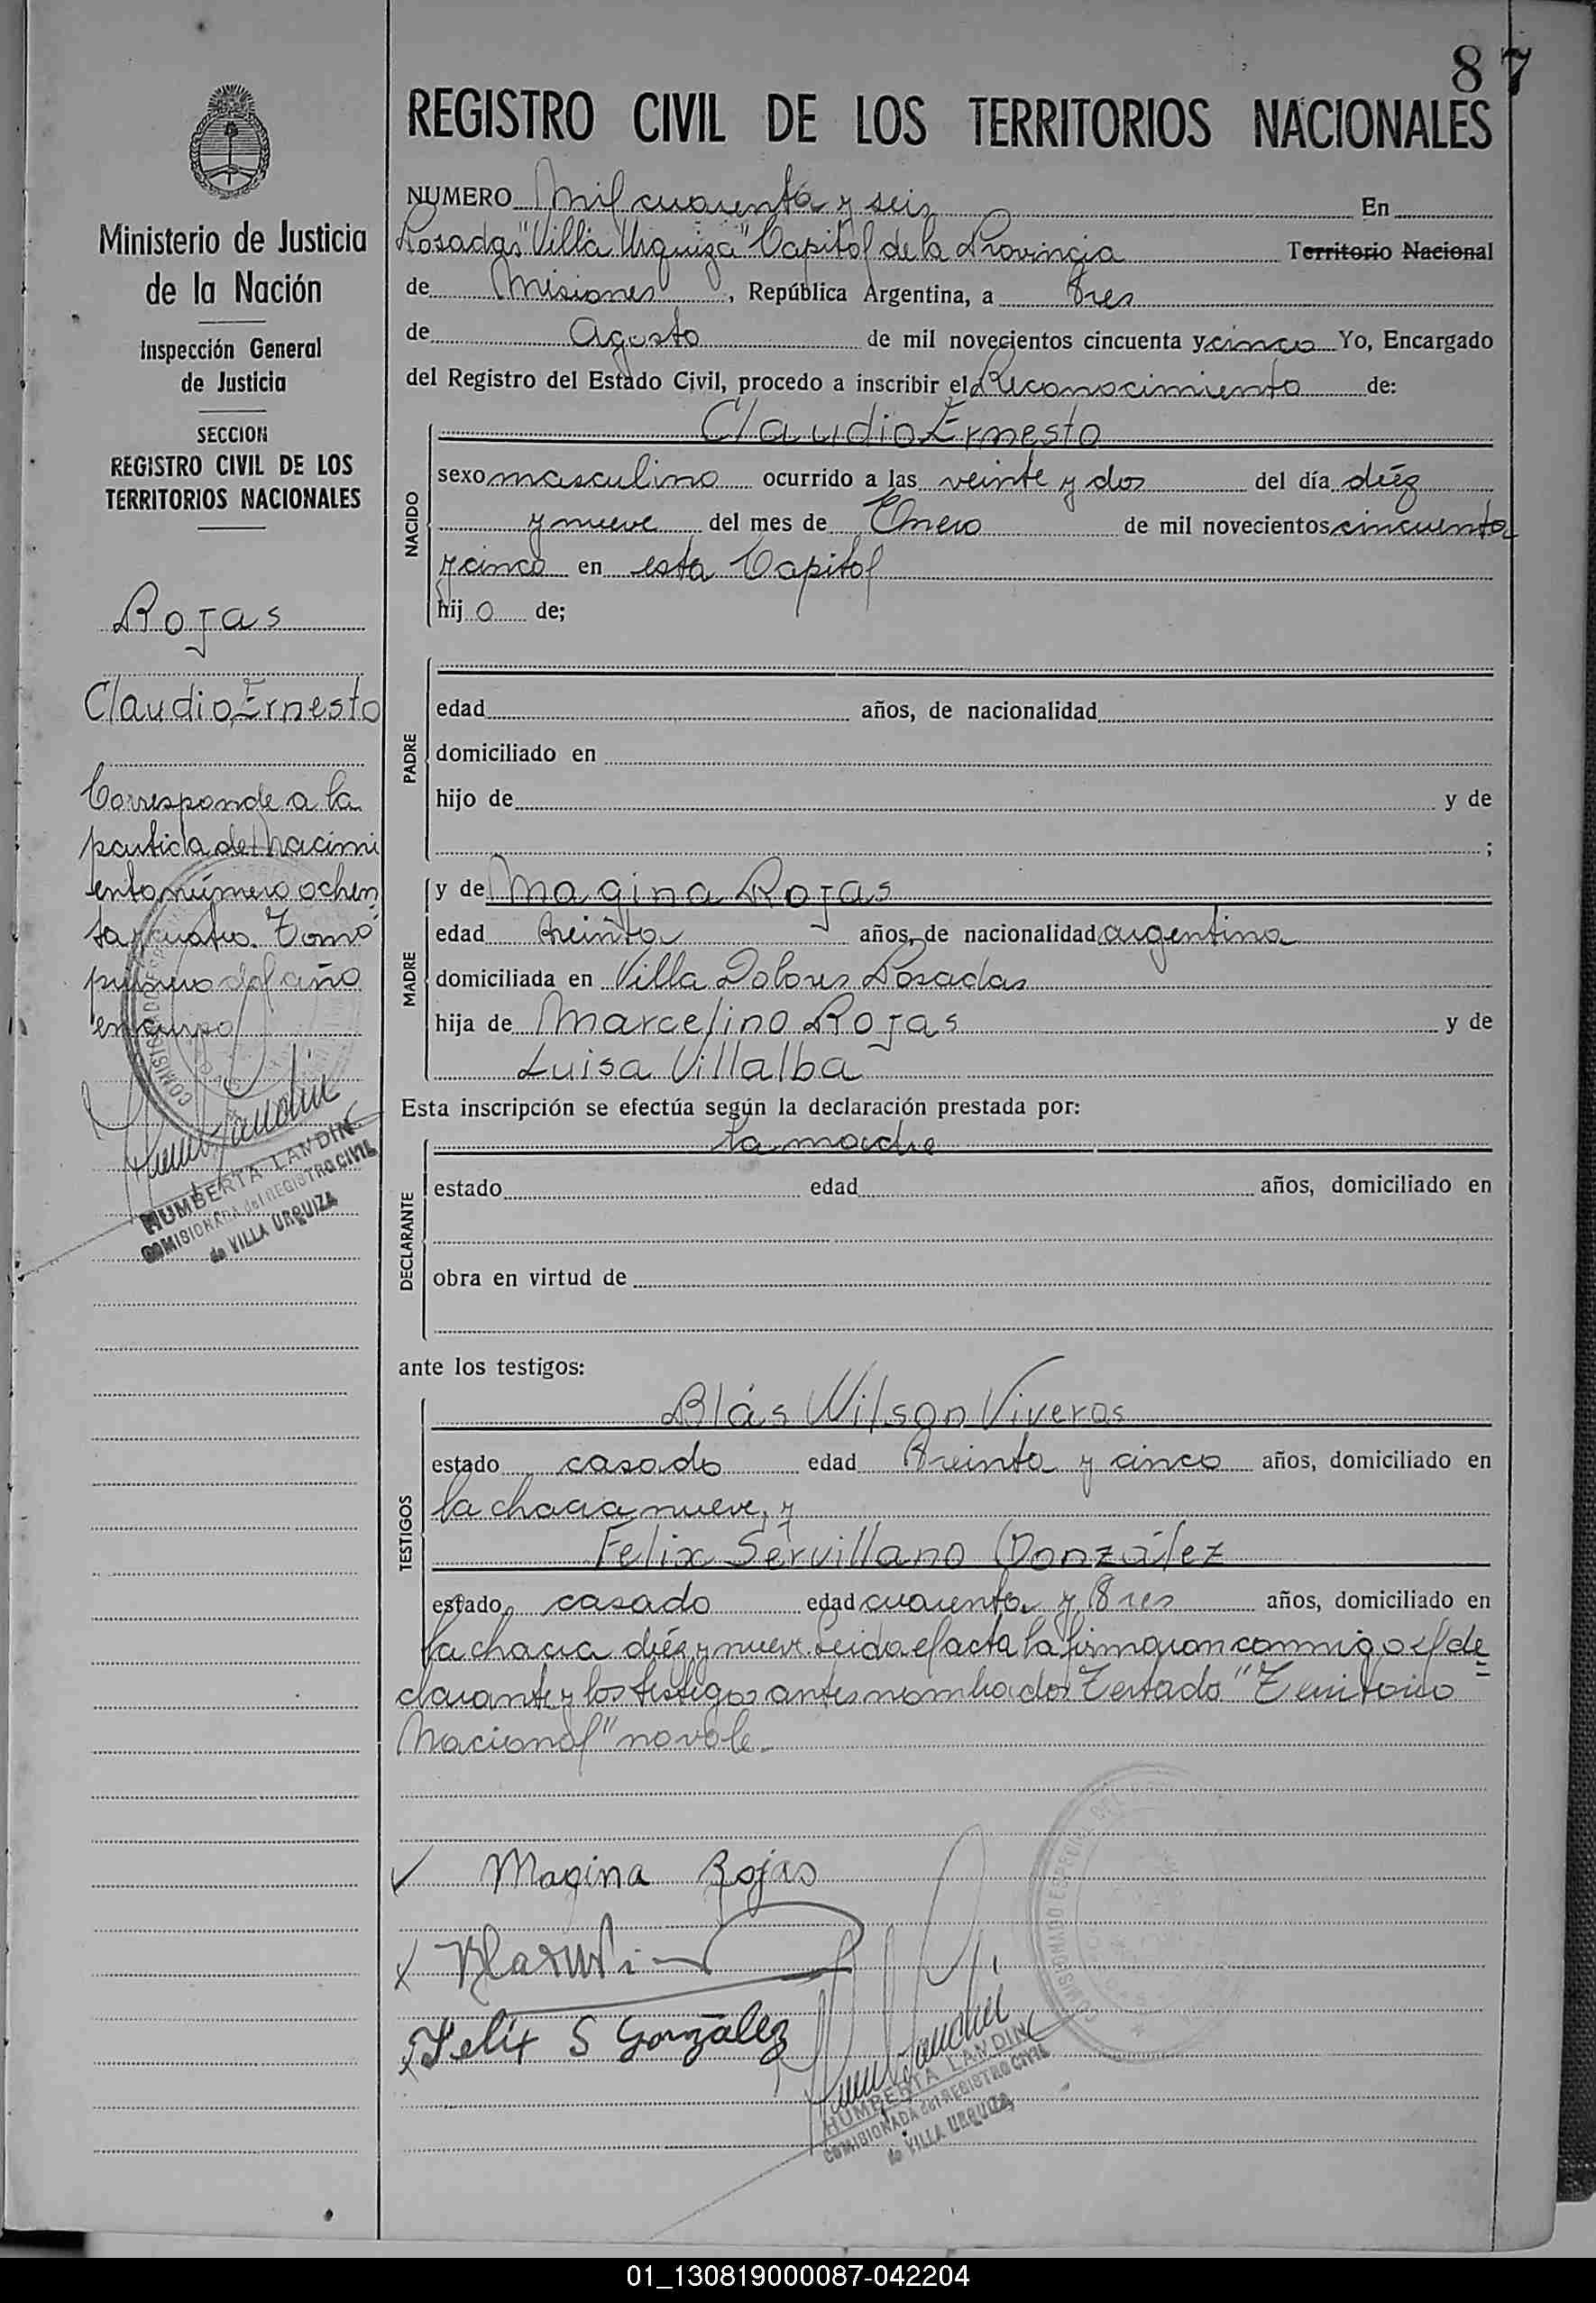 87
REGISTRO CIVIL DE LOS TERRITORIOS NACIONALES
Ministerio de Justicia
de la Nación
Inspección General
de Justicia
SECCION
REGISTRO CIVIL DE LOS
TERRITORIOS NACIONALES
Rojas
Claudio Ernesto
Corresponde a la
partida de nacimi
ento número ochen
ta y cuatro. Tomo
primero del año
en curso
HUMBERTA LANDIN
COMISIONADA del REGISTRO CIVIL
de VILLA URQUIZA
NUMERO Mil cuarenta y seis En
Posadas "Villa Urquiza" Capital de la Provincia Territorio Nacional
de Misiones, República Argentina, a tres
de Agosto de mil novecientos cincuenta y cinco Yo, Encargado
del Registro del Estado Civil, procedo a inscribir el Reconocimiento de:
Claudio Ernesto
NACIDO
sexo masculino ocurrido a las veinte y dos del día diéz
y nueve del mes de Enero de mil novecientos cincuenta
y cinco en esta Capital
hijo de;
PADRE
edad años, de nacionalidad
domiciliado en
hijo de y de
;
MADRE
y de Magina Rojas
edad treinta años, de nacionalidad argentina
domiciliada en Villa Dolores Posadas
hija de Marcelino Rojas y de
Luisa Villalba
Esta inscripción se efectúa según la declaración prestada por:
la madre
DECLARANTE
estado edad años, domiciliado en
obra en virtud de
ante los testigos:
Blás Wilson Viveros
TESTIGOS
estado casado edad treinta y cinco años, domiciliado en
la chacra nueve, y
Felix Servillano González
estado casado edad cuarenta y tres años, domiciliado en
la chacra diéz y nueve. Leida el acta la firmaron conmigo el de=
clarante y los testigos antes nombrados Testado "Territorio
Nacional" no vale.
Magina Rojas
Felix S González
HUMBERTA LANDIN
COMISIONADA del REGISTRO CIVIL
de VILLA URQUIZA
01_130819000087-042204